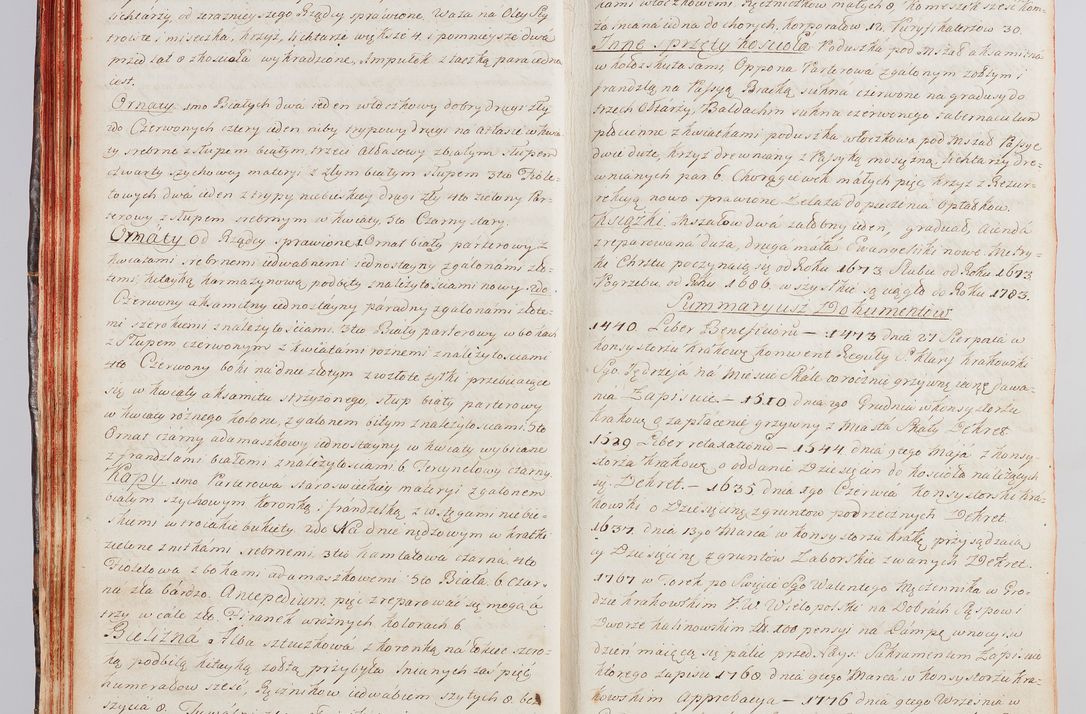 lichtarzy od teraznieyszego Rządcy sprawione, Waza na Oley Sty
trociste i miseczka, krzyż, lichtarze większe 4. i pomnieysze dwa
przed lat 8 zkościoła wykradzione, Ampułek z tacką para iedna
iest.
Ornaty 1mo Białych dwa ieden włoczkowy dobry drugi zły
2do Czerwonych cztery ieden niby trypowy drugi na atłasie w kwia-
ty srebrne z słupem białym, trzeci Atłasowy z białym słupem
czwarty szychowey materyi z złym białym słupem 3tio Fiole-
towych dwa ieden z trypy niebieskiey drugi zły 4to zielony Par-
terowy z słupem srebrnym w kwiaty, 5to Czarny stary.
Ornaty od Rządcy sprawione 1 Ornat biały parterowy z
kwiatami srebrnemi iedwabnemi iednostayny z galonami zło-
temi kitayką karmazynową podbity z należytościami nowy. 2do
Czerwony aksamitny iednostayny paradny z galonami złote-
mi szerokiemi z należytościami. 3tio Biały parterowy w bokach
z Słupem czerwonym z kwiatami roznemi z należytościami
4to Czerwony boki na dnie złotym złote żyłki przebiiaiące
się w kwiaty aksamitu strzyżonego, słup biały parterowy
w kwiaty rożnego koloru, z galonem białym z należytościami 5to
Ornat czarny adamaszkowy iednostayny w kwiaty wybiiane
z frandzlami białemi z należytościami 6 Tercynelowy czarny.
Kapy 1mo Parterowa staroswieckiey materyi z galonem
białym szychowym koronką i frandzelką, z wstęgami niebie-
skiemi w troiakie bukiety 2do Na dnie nędzowym w kratki
zielone z nitkami srebrnemi 3tio kamlatowa czarna, 4to
Fioletowa z bokami adamaszkowemi 5to Biała 6 Czar-
na zła bardzo. Antepedium pięć zreparować się mogą a
trzy wcale złe. Firanek w roznych kolorach 6.
Bielizna Alba sztuczkowa z koronką na łokieć szero-
ką podbitą kitayką żółtą przybyła lnianych zaś pięć
humerałow sześć, Ręcznikow iedwabiem szytych 8. bez
szycia 8.
kami włoczkowemi. Ręczniczkow małych 8. komeszek sześć kom-
ża lniana iedna do chorych, korporałow 12. Puryfikaterzow 30.
Inne sprzęty kościoła Poduszka pod mszał aksamitna
w koło z kutasami, Oppona Parterowa z galonym żołtym i
frandzlą na Passyą Bracką sukna czerwone na gradusy do
trzech Ołtarzy, Baldachim sukna czerwonego Tabernaculum
płocienne z kwiatkami poduszka włoczkowa pod Mszał Passye
dwie duże, krzyż drewniany z Passyką mosiężną, lichtarzy dre-
wnianych par 6. Chorągiewek małych pięć, krzyż z Rezur-
rekcyą nowo sprawione Żelaza do pieczenia opłatkow.
Książki Mszałow dwa żałobny ieden, graduał, Aienda
zreparowana duża, druga mała Ewangeliczki nowe. Metry-
ki Chrztu poczynaią się od Roku 1673 Slubu od Roku 1673
Pogrzebu od Roku 1686. wszystkie są ciągłe do Roku 1783.
Summaryusz Dokumentow
1440. Liber Beneficiorũ – 1473 dnia 27 Sierpnia w
konsystorzu krakows. konwent Reguły S. Klary krakowski
Sgo Jędrzeja na Mieście Skale corocznie grzywnę iednę dawa-
nia Zapisuie. – 1510 dnia 20 Grudnia w konsystorzu
krakows. o zapłacenie grzywny z Miasta Skały Dekret
1529 Liber relaxationũ – 1544 dnia 9cego Maja z konsy-
storza krakows. o oddanie Dziesięcin do kościoła należących
się. Dekret. – 1635 dnia 1go Czerwca konsystorski kra-
kowski o Dziesięcinę z gruntow podrzecznych Dekret.
1637. dnia 13go Marca w konsystorzu krako. przysądzaią-
cy Dziesięcinę z gruntów Zaborskie zwanych Dekret.
1767 w Torek po Swięcie Sgo Walentego Męczennika w Gro-
dzie krakowskim J.W. Wielopolski na Dobrach Sąspowi
Dworze kalinowskim zł. 100 pensyi na Lampę w nocy i w
dzień maiącą się palić przed Nays. Sakramentem Zapisuie
ktorego zapisu 1768 dnia 9cego Marca w konsystorzu kra-
kowskim Approbacya – 1776 dnia 9cego Wrzesnia w